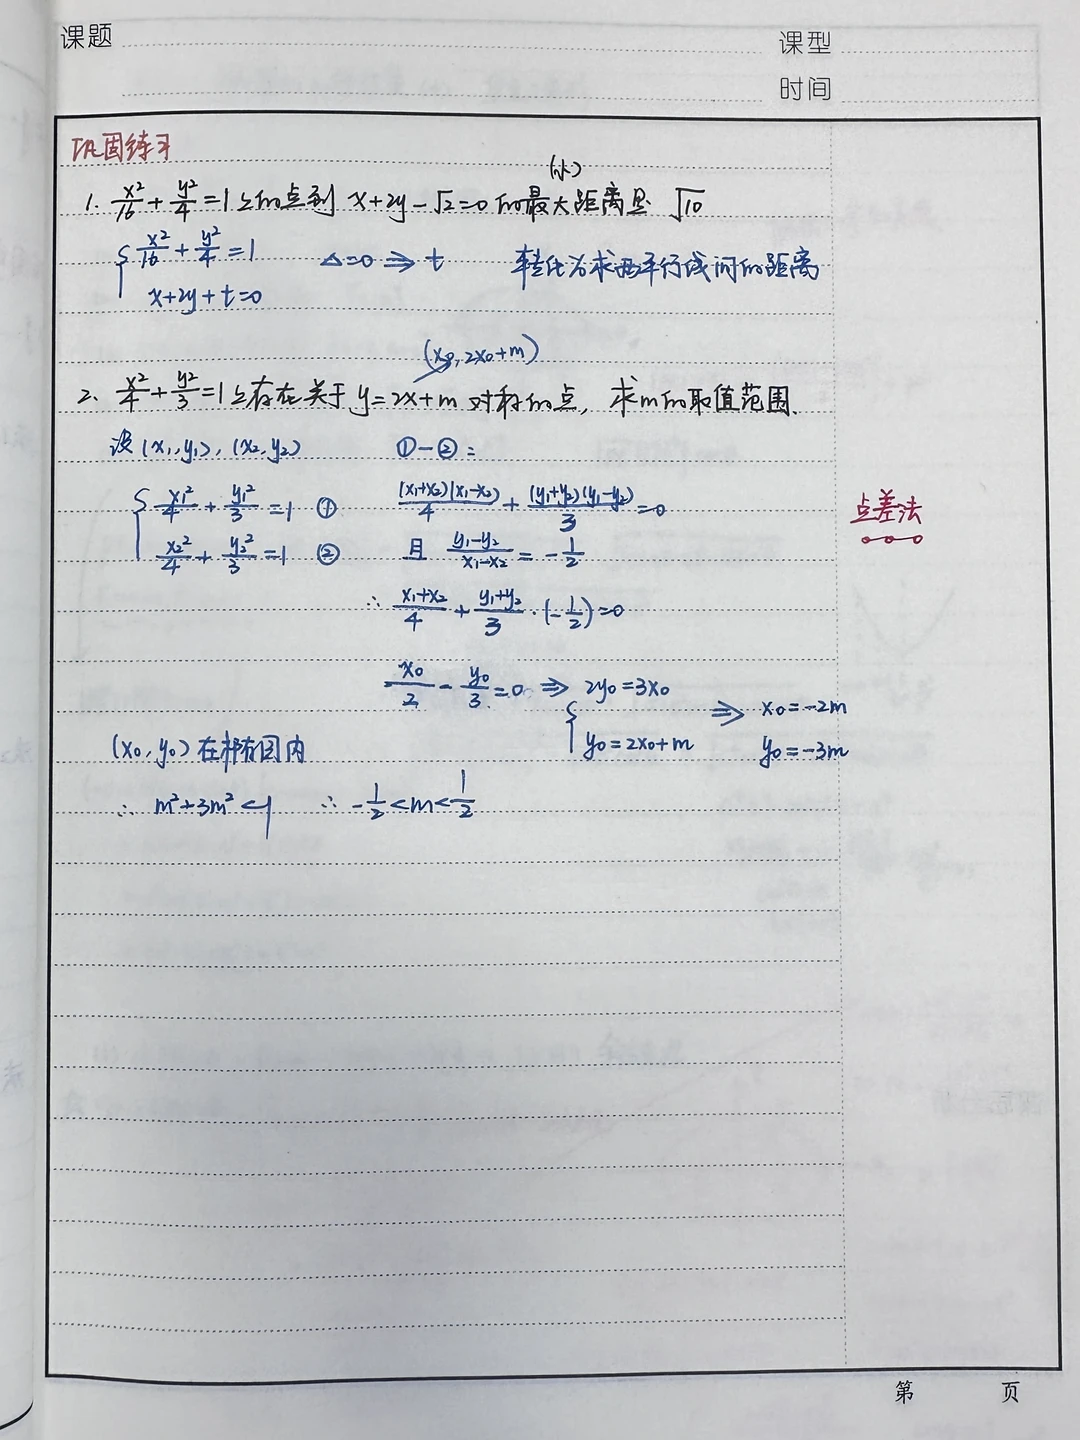 课题
课型
时间
巩固练习
(小)
1. x²/16 + y²/4 = 1 上的点到 x+2y-√2=0 的最大距离是 √10
{ x²/16 + y²/4 = 1
x+2y+t=0
Δ=0 ⇒ t 转化为求两平行线间的距离
(x₀, 2x₀+m)
2. x²/4 + y²/3 = 1 上存在关于 y=2x+m 对称的点, 求m的取值范围.
设 (x₁,y₁), (x₂,y₂) ①-②:
{ x₁²/4 + y₁²/3 = 1 ① (x₁+x₂)(x₁-x₂)/4 + (y₁+y₂)(y₁-y₂)/3 = 0
点差法
x₂²/4 + y₂²/3 = 1 ② 且 (y₁-y₂)/(x₁-x₂) = -1/2
∴ (x₁+x₂)/4 + (y₁+y₂)/3 · (-1/2) = 0
x₀/2 - y₀/3 = 0 ⇒ { 2y₀=3x₀
y₀=2x₀+m
⇒ x₀=-2m
y₀=-3m
(x₀, y₀) 在椭圆内
∴ m²+3m²<1 ∴ -1/2<m<1/2
第 页